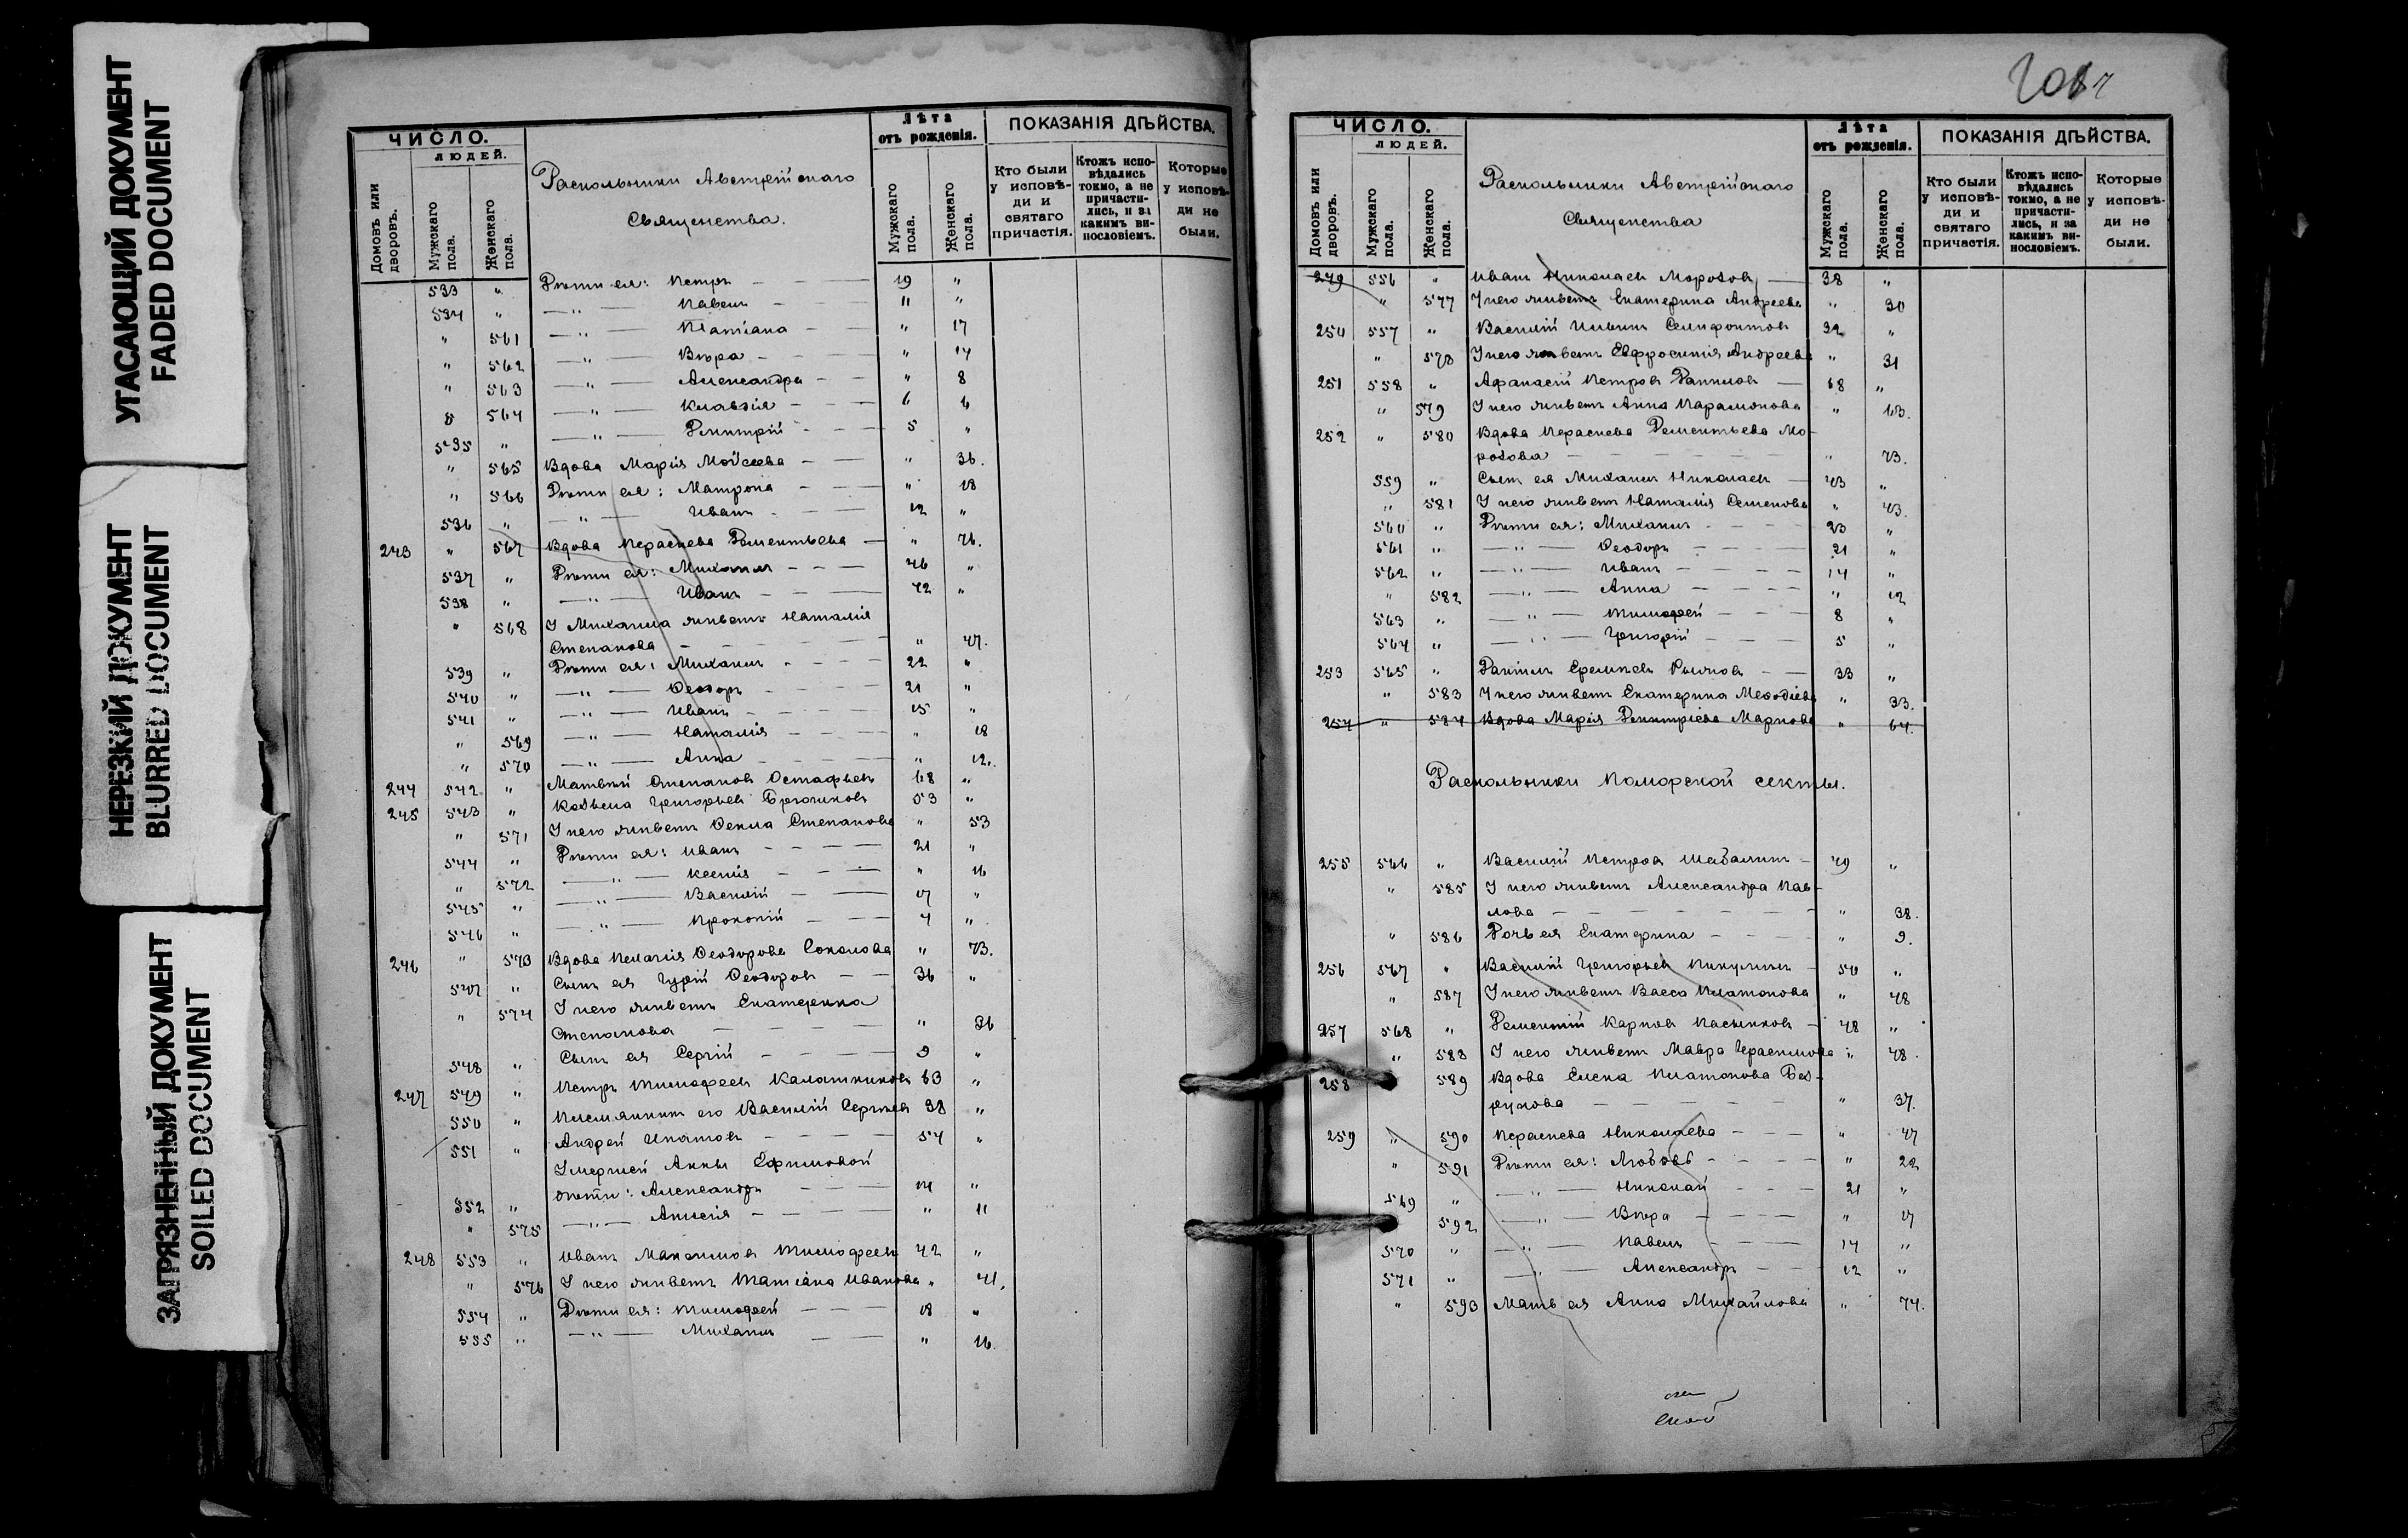 УГАСАЮЩИЙ ДОКУМЕНТ
FADED DOCUMENT
НЕРЕЗКИЙ ДОКУМЕНТ
BLURRED DOCUMENT
ЗАГРЯЗНЕННЫЙ ДОКУМЕНТ
SOILED DOCUMENT
ЧИСЛО.
людей.
Домовъ или дворовъ.
Мужскаго пола.
Женскаго пола.
Раскольники Австрійскаго
Священства.
Лѣта
отъ рожденія.
Мужскаго пола.
Женскаго пола.
ПОКАЗАНІЯ ДѢЙСТВА.
Кто были у исповѣди и святаго причастія.
Ктожъ исповѣдались токмо, а не причастились, и за какимъ винословіемъ.
Которые у исповѣди не были.
533 " Дѣти ея: Петръ 19 "
534 " — " — Павелъ 11 "
" 561 — " — Татіана " 17
" 562 — " — Вѣра " 14
" 563 — " — Александра " 8
564 — " — Клавдія 6
535 " — " — Димитрій 5 "
" 565 Вдова Марія Моѵсеева " 36.
" 566 Дѣти ея: Матрона " 18
536 " — " — Иванъ 12 "
243 " 567 Вдова Параскева Дементьева " 76.
537 " Дѣти ея: Михаилъ 46 "
538 " — " — Иванъ 42 "
" 568 У Михаила живетъ Наталія
Степанова " 47.
539 " Дѣти ея: Михаилъ 22 "
540 " — " — Ѳеодоръ 21 "
541 " — " — Иванъ 15 "
" 569 — " — Наталія " 18
" 570 — " — Анна " 12.
244 542 " Матвѣй Степановъ Остафьевъ 68 "
245 543 " Козьма Григорьевъ Брюшковъ 53 "
" 571 У него живетъ Ѳекла Степанова " 53
544 " Дѣти ея: Иванъ 21 "
" 572 — " — Ксенія " 16
545 " — " — Василій 17 "
546 " — " — Прокопій 4 "
246 " 573 Вдова Пелагія Ѳеодорова Соколова " 73.
547 " Сынъ ея Гурій Ѳеодоровъ 36 "
" 574 У него живетъ Екатерина
Степанова " 36
548 " Сынъ ея Сергій 9 "
247 549 " Петръ Тимофеевъ Калашниковъ 63 "
550 " Племянникъ его Василій Сергѣевъ 38 "
551 " Андрей Ипатовъ 54 "
Умершей Анны Ефимовой
дѣти: Александръ 14 "
552 "
" 575 — " — Анисія " 11
248 553 " Иванъ Максимовъ Тимофеевъ 42 "
" 576 У него живетъ Татіана Иванова " 41.
554 " Дѣти ея: Тимофей 18 "
555 " — " — Михаилъ " 16.
ЧИСЛО.
людей.
Домовъ или дворовъ.
Мужскаго пола.
Женскаго пола.
Раскольники Австрійскаго
Священства
Лѣта
отъ рожденія.
Мужскаго пола.
Женскаго пола.
ПОКАЗАНІЯ ДѢЙСТВА.
Кто были у исповѣди и святаго причастія.
Ктожъ исповѣдались токмо, а не причастились, и за какимъ винословіемъ.
Которые у исповѣди не были.
249 556 " Иванъ Николаевъ Морозовъ 38 "
" 577 У него живетъ Екатерина Андреева " 30
250 557 " Василій Ильинъ Селифонтовъ 32 "
" 578 У него живетъ Евфросинія Андреева " 31
251 558 " Афанасій Петровъ Даниловъ 68 "
" 579 У него живетъ Анна Парамонова " 63.
252 " 580 Вдова Параскева Дементьева Мо-
розова " 73.
559 " Сынъ ея Михаилъ Николаевъ 43 "
" 581 У него живетъ Наталія Семенова " 43.
560 " Дѣти ея: Михаилъ 23 "
561 " — " — Ѳеодоръ 21 "
562 " — " — Иванъ 14 "
" 582 — " — Анна " 12
563 " — " — Тимофей 8 "
564 " — " — Григорій 5 "
253 565 " Даніилъ Еремѣевъ Рычковъ 33 "
" 583 У него живетъ Екатерина Меѳодіева " 33.
254 " 584 Вдова Марія Димитріева Маркова " 64.
Раскольники Поморской секты.
255 566 " Василій Петровъ Шабалинъ 49 "
" 585 У него живетъ Александра Пав-
лова " 38.
" 586 Дочь ея Екатерина " 9.
256 567 " Василій Григорьевъ Пикулинъ 50 "
" 587 У него живетъ Васса Платонова " 48
257 568 " Дементій Карповъ Пасынковъ 48 "
" 588 У него живетъ Мавра Герасимова " 48.
258 589 Вдова Елена Платонова Без-
рукова " 37.
259 " 590 Параскева Николаева " 47
" 591 Дѣти ея: Любовь " 22
569 " — " — Николай 21 "
592 — " — Вѣра " 17
570 " — " — Павелъ 14 "
571 " — " — Александръ 12 "
" 593 Мать ея Анна Михайлова " 74.